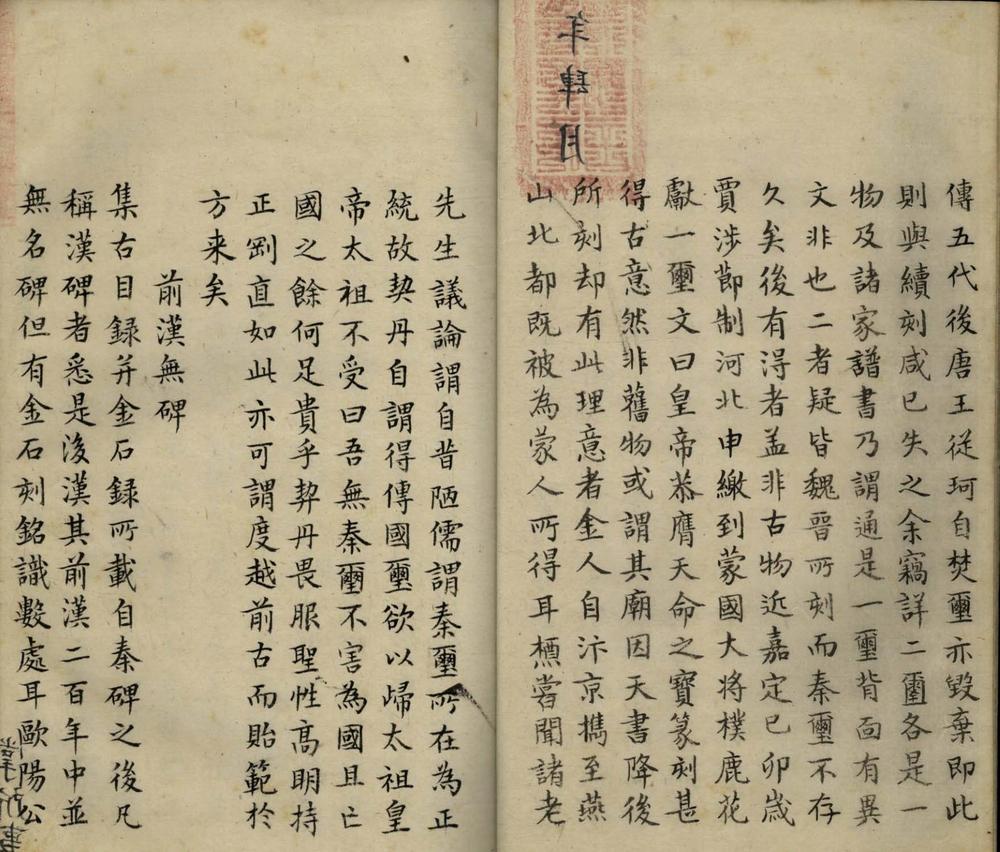 傳五代後唐王従珂自焚璽亦毀棄即此
則與續刻咸已失之余竊詳二璽各是一
物及諸家譜書乃謂通是一璽背面有異
文非也二者疑皆魏晉所刻而秦璽不存
久矣後有淂者盖非古物近嘉定已卯歳
賈涉節制河北申繳到蒙國大将樸鹿花
獻一璽文曰皇帝恭膺天命之寶篆刻甚
得古意然非舊物或謂其廟因天書降後
所刻却有此理意者金人自汴京擕至燕
山北都既被為蒙人所得耳櫄嘗聞諸老
先生議論謂自昔陋儒謂秦璽所在為正
統故契丹自謂得傳國璽欲以歸太祖皇
帝太祖不受曰吾無秦璽不害為國且亡
國之餘何足貴乎契丹畏服聖性髙明持
正剛直如此亦可謂度越前古而貽範於
方来矣
前漢無碑
集古目録并金石録所載自秦碑之後凡
稱漢碑者悉是後漢其前漢二百年中並
無名碑但有金石刻銘識數處耳歐陽公